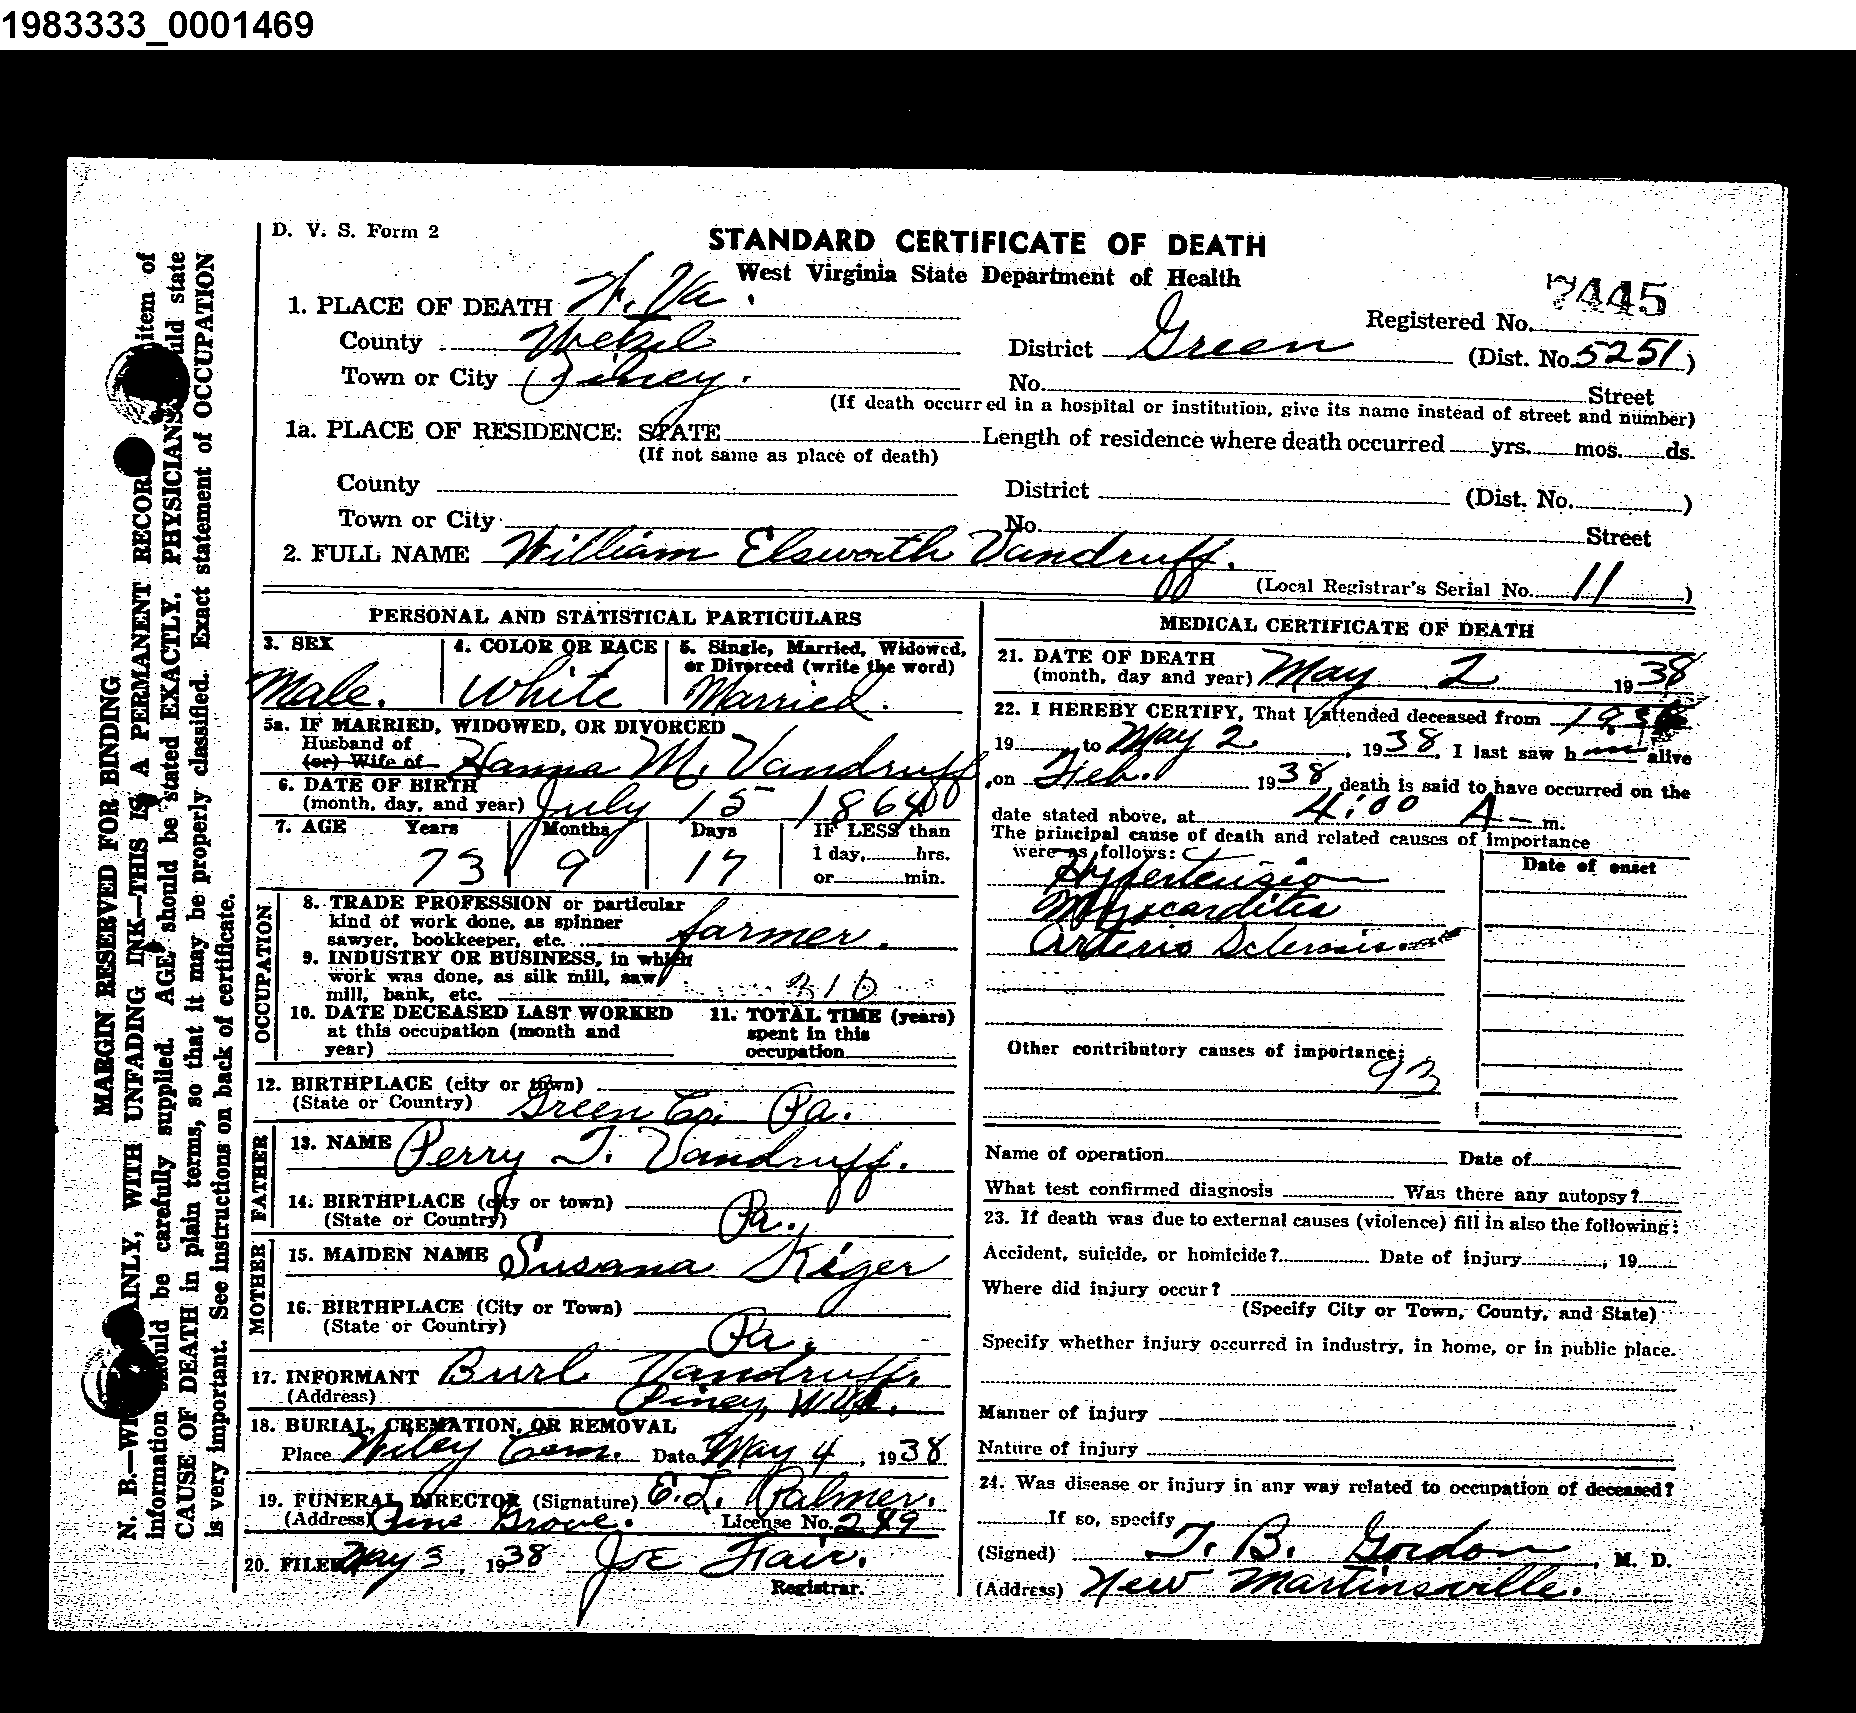 1983333_0001469
D. V. S. Form 2
STANDARD CERTIFICATE OF DEATH
West Virginia State Department of Health
7445
1. PLACE OF DEATH W. Va.
Registered No.
County Wetzel
District Green (Dist. No. 5251)
Town or City Piney.
No. Street
(If death occurred in a hospital or institution, give its name instead of street and number)
1a. PLACE OF RESIDENCE: STATE
Length of residence where death occurred yrs. mos. ds.
(If not same as place of death)
County
District (Dist. No. )
Town or City
No. Street
2. FULL NAME William Elsworth Vandruff.
(Local Registrar's Serial No. 11 )
PERSONAL AND STATISTICAL PARTICULARS
3. SEX
Male.
4. COLOR OR RACE
White
5. Single, Married, Widowed,
or Divorced (write the word)
Married.
5a. IF MARRIED, WIDOWED, OR DIVORCED
Husband of
(or) Wife of Hanna M. Vandruff
6. DATE OF BIRTH
(month, day, and year) July 15 1864
7. AGE Years Months Days IF LESS than
73 9 17 1 day, hrs.
or min.
OCCUPATION
8. TRADE PROFESSION or particular
kind of work done, as spinner
sawyer, bookkeeper, etc. farmer.
9. INDUSTRY OR BUSINESS, in which
work was done, as silk mill, saw
mill, bank, etc. 310
10. DATE DECEASED LAST WORKED
at this occupation (month and
year)
11. TOTAL TIME (years)
spent in this
occupation
12. BIRTHPLACE (city or town)
(State or Country) Green Co. Pa.
FATHER
13. NAME Perry T. Vandruff.
14. BIRTHPLACE (city or town)
(State or Country) Pa.
MOTHER
15. MAIDEN NAME Susana Kiger
16. BIRTHPLACE (City or Town)
(State or Country) Pa.
17. INFORMANT Burl Vandruff.
(Address) Piney, W Va.
18. BURIAL, CREMATION, OR REMOVAL
Place Wiley Cem. Date May 4, 1938
19. FUNERAL DIRECTOR (Signature) E. L. Palmer.
(Address) Pine Grove. License No. 289
20. FILED May 3, 1938 Joe Fair.
Registrar.
MEDICAL CERTIFICATE OF DEATH
21. DATE OF DEATH
(month, day and year) May 2 1938
22. I HEREBY CERTIFY, That I attended deceased from
19 to May 2, 1938, I last saw h alive
on Feb. 1938, death is said to have occurred on the
date stated above, at 4:00 A m.
The principal cause of death and related causes of importance
were as follows:
Date of onset
Hypertension
Myocarditis
Arterio Sclerosis
Other contributory causes of importance:
93
Name of operation Date of
What test confirmed diagnosis Was there any autopsy?
23. If death was due to external causes (violence) fill in also the following:
Accident, suicide, or homicide? Date of injury, 19
Where did injury occur?
(Specify City or Town, County, and State)
Specify whether injury occurred in industry, in home, or in public place.
Manner of injury
Nature of injury
24. Was disease or injury in any way related to occupation of deceased?
If so, specify
(Signed) T. B. Gordon, M. D.
(Address) New Martinsville.
MARGIN RESERVED FOR BINDING
N. B.—INLY, WITH UNFADING INK—THIS IS A PERMANENT RECOR item of
information should be carefully supplied. AGE should be stated EXACTLY. PHYSICIANS should state
CAUSE OF DEATH in plain terms, so that it may be properly classified. Exact statement of OCCUPATION
is very important. See instructions on back of certificate.